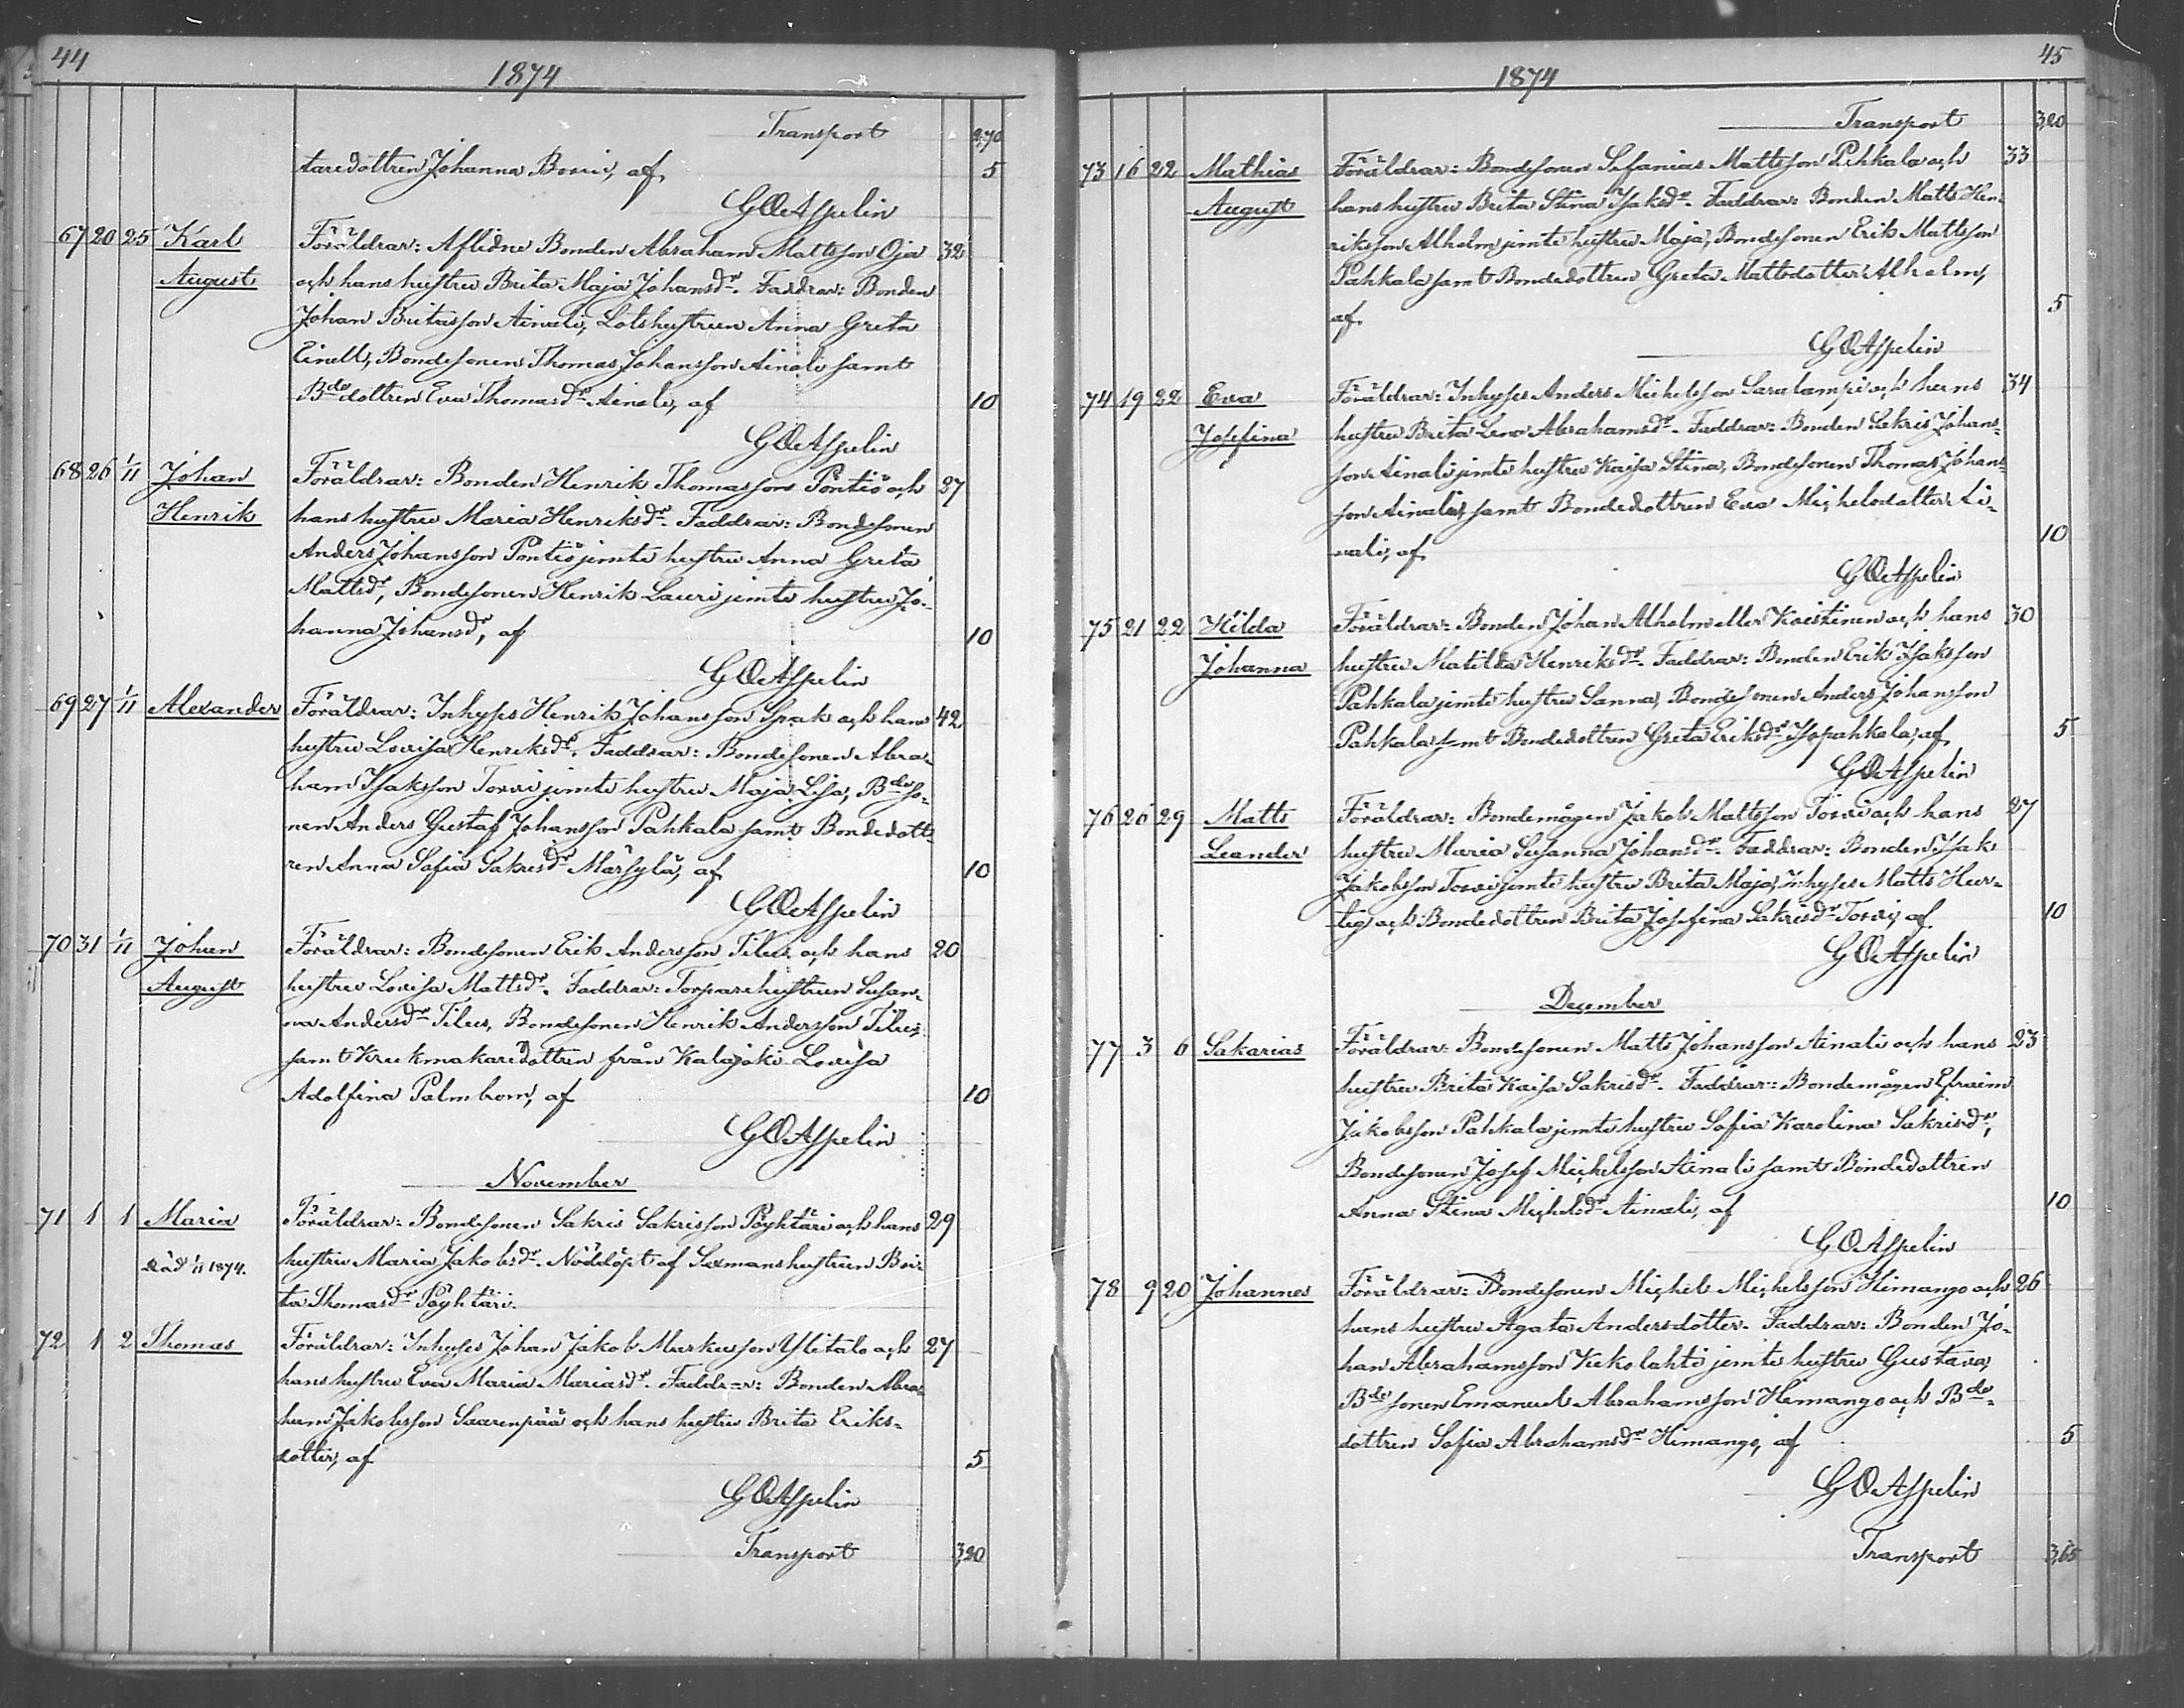 44
1874
Transport 2,70
taredottren Johanna Bovin, af 5
G O Aspelin
67 20 25 Karl Föräldrar: Aflidne Bonden Abraham Mattsson Oja 32
August och hans hustru Brita Maja Johansdr. Faddrar: Bonden
Johan Britasson Ainali, Lotshustrun Anna Greta
Einell, Bondesonen Thomas Johansson Ainali samt
Bdedottren Eva Thomasdr Ainali, af 10
G O Aspelin
68 26 1/11 Johan Föräldrar: Bonden Henrik Thomasson Pöntiö och 27
Henrik hans hustru Maria Henriksdr. Faddrar: Bondesonen
Anders Johansson Pöntiö jemte hustru Anna Greta
Mattsdr, Bondesonen Henrik Lauri jemte hustru Jo-
hanna Johansdr, af 10
G O Aspelin
69 27 1/11 Alexander Föräldrar: Inhyses Henrik Johansson Sprak och hans 42
hustru Lovisa Henriksdr. Faddrar: Bondesonen Abra-
ham Isaksson Torvi jemte hustru Maja Lisa, Bdeso-
nen Anders Gustaf Johansson Pahkala samt Bondedott-
ren Anna Sofia Sakrisdr Märsylä, af 10
G O Aspelin
70 31 1/11 Johan Föräldrar: Bondesonen Erik Andersson Tilus och hans 20
August hustru Lovisa Mattsdr. Faddrar: Torparehustrun Susan-
na Andersdr Tilus, Bondesonen Henrik Andersson Tilus
samt Krukmakaredottren från Kalajoki Lovisa
Adolfina Palmbom, af 10
G O Aspelin
November
71 1 1 Maria Föräldrar: Bondesonen Sakris Sakrisson Pöyhtäri och hans 29
Död 1/11 1874. hustru Maria Jakobsdr. Nöddöpt af Sexmanshustrun Bri-
ta Thomasdr Pöyhtäri.
72 1 2 Thomas Föräldrar: Inhyses Johan Jakob Markusson Ylitalo och 27
hans hustru Eva Maria Mariasdr. Faddrar: Bonden Abra-
ham Jakobsson Saarenpää och hans hustru Brita Eriks-
dotter, af 5
G O Aspelin
Transport 3,20
45
1874
Transport 3,20
73 16 22 Mathias Föräldrar: Bondesonen Sefanias Mattsson Pahkala och 33
August hans hustru Brita Stina Isaksdr. Faddrar: Bonden Matts Hen-
riksson Alholm jemte hustru Maja, Bondesonen Erik Mattsson
Pahkala samt Bondedottren Greta Mattsdotter Alholm,
af 5
G O Aspelin
74 19 22 Eva Föräldrar: Inhyses Anders Michelsson Saralampi och hans 34
Josefina hustru Brita Lena Abrahamsdr. Faddrar: Bonden Sakris Johans-
son Ainali jemte hustru Kaisa Stina, Bondesonen Thomas Johans-
son Ainali samt Bondedottren Eva Michelsdotter Ai-
nali, af 10
G O Aspelin
75 21 22 Hilda Föräldrar: Bonden Johan Alholm eller Koistinen och hans 30
Johanna hustru Matilda Henriksdr. Faddrar: Bonden Erik Isaksson
Pahkala jemte hustru Sanna, Bondesonen Anders Johansson
Pahkala samt Bondedottren Greta Eriksdr Isopahkala, af 5
G O Aspelin
76 26 29 Matts Föräldrar: Bondemågen Jakob Mattsson Torvi och hans 27
Leander hustru Maria Susanna Johansdr. Faddrar: Bonden Isak
Jakobsson Torvi jemte hustru Brita Maja, Inhyses Matts Hur-
tig och Bondedottren Brita Josefina Sakrisdr Torvi, af 10
G O Aspelin
December
77 3 6 Sakarias Föräldrar: Bondesonen Matts Johansson Ainali och hans 23
hustru Brita Kaisa Sakrisdr. Faddrar: Bondemågen Efraim
Jakobsson Pahkala jemte hustru Sofia Karolina Sakrisdr,
Bondesonen Josef Michelsson Ainali samt Bondedottren
Anna Stina Michelsdr Ainali, af 10
G O Aspelin
78 9 20 Johannes Föräldrar: Bondesonen Michel Michelsson Himango och 26
hans hustru Agata Andersdotter. Faddrar: Bonden Jo-
han Abrahamsson Kekolahti jemte hustru Gustava,
Bdesonen Emanuel Abrahamsson Himango och Bde-
dottren Sofia Abrahamsdr Himango, af 5
G O Aspelin
Transport 3,65